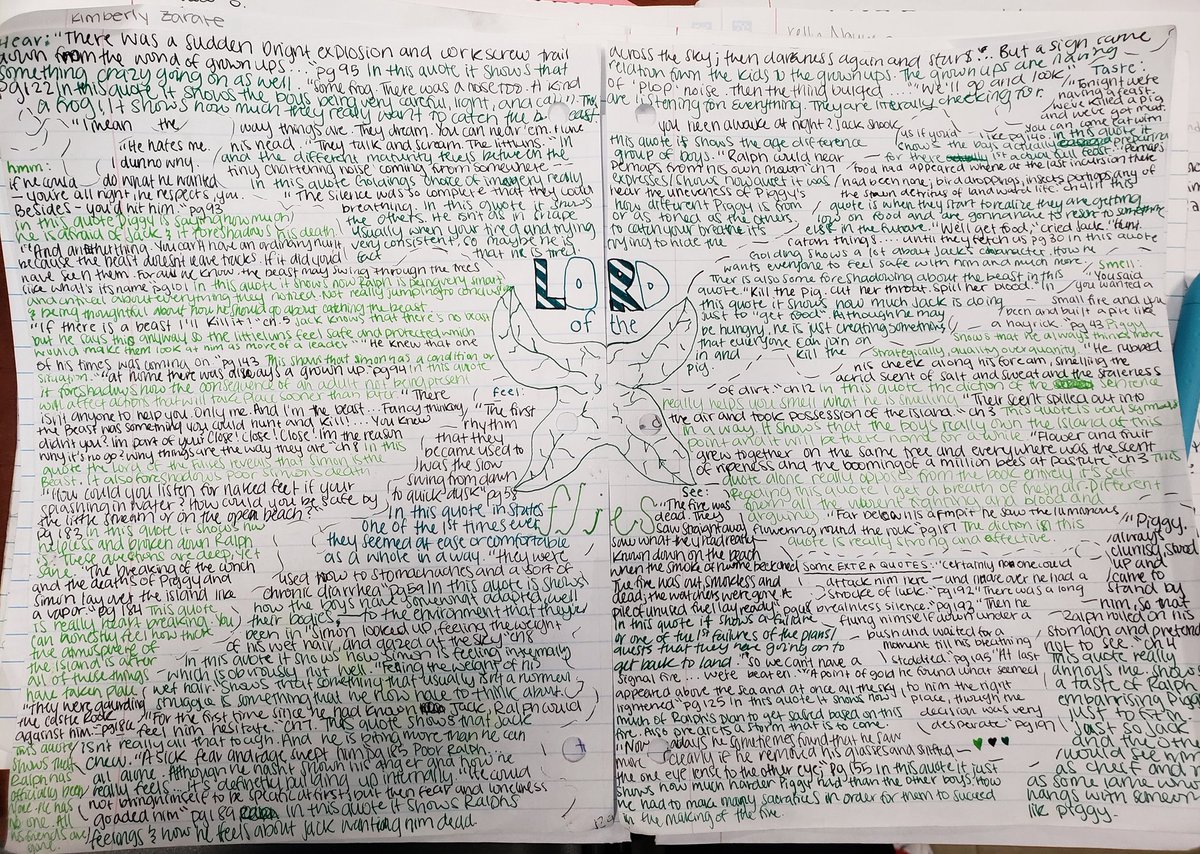 Kimberly Zarate
Hear: "There was a sudden bright explosion and corkscrew trail across the sky; then darkness again and stars... But a sign came
down from the world of grown ups..." pg 95 In this quote it shows that relation from the kids to the grownups. The grown ups are having
something crazy going on as well. "some frog. There was a noise too. A kind of "Plop" noise. Then the thing bulged..." "We'll go and look,"
pg 122 In this quote it shows the boys being very careful, light, and are listening for everything. They are literally checking for
a frog! It shows how much they really want to catch the beast.
"I mean the way things are. They dream. You can hear 'em. Have you been awake at night? Jack shook
his head. "They talk and scream. The littluns. In this quote it shows the age difference
and the different maturity levels between the group of boys. "Ralph could hear
tiny chattering noise coming from somewhere perhaps from his own mouth" ch 7
In this quote Goldings choice of imagery really expresses/shows how quiet it was.
"The silence was so complete that they could hear the unevenness of Piggy's
breathing. In this quote it shows how different Piggy is from
the others. He isn't as in shape or as toned as the others.
usually when your tired and trying to catch your breathe it's
very consistent, so maybe he is trying to hide the
fact that he is tired
hmm:
"He hates me.
I dunno why.
If he could do what he wanted
—you're all right, he respects you.
Besides — you'd hit him." pg 93
In this quote Piggy is stating how much
he is afraid of Jack & it foreshadows his death
because the beast doesn't leave tracks. If it did you'd
have seen them. For all we know, the beast may swing through the trees
like what's its name" pg 101 In this quote it shows how Ralph is being very smart
and critical about everything they noticed. Not really jumping to conclusions
& being thoughtful about how he should go about catching the beast.
"If there is a beast I'll kill it!" ch. 5 Jack knows there's no beast
but he says this anyway so the littleuns feel safe and protected, which
would make them look at him as more of a leader. "He knew that one
of his times was coming on." pg 143 This shows that simon has a condition or
situation. "at home there was always a grown up." pg 94 In this quote
it foreshadows how the consequence of an adult not being present
will affect acts that will take place sooner than later. "There
isn't anyone to help you. Only me. And I'm the beast... Fancy thinking
the Beast was something you could hunt and kill!... You knew
didn't you? I'm part of you? Close! Close! Close! I'm the reason
why it's no go? Why things are the way they are" ch 8 In this
quote the Lord of the Flies reveals that simon is the
Beast. It also foreshadows poor simon's death.
"How could you listen for naked feet if your
splashing in water? How could you be safe by
the little stream or on the open beach?"
pg 183 In this quote it shows how
helpless and broken down Ralph
is. These questions are deep, yet
sane. "The breaking of the conch
and the deaths of Piggy and
simon lay over the island like
a vapor." pg 184 This quote
is really heart breaking. You
can honestly feel how thick
the atmosphere of
the island is after
all of these things
have taken place.
"They were guarding
the castle Rock
against him." pg 186
This quote
shows that
Ralph has
officially been
alone. He has
no one. All
his friends are
gone.
Feel:
"The first
rhythm
that they
became used to
was the slow
swing from dawn
to quick dusk" pg 58
In this quote it states
one of the 1st times ever
they seemed at ease or comfortable
as a whole in a way. "they were
used now to stomachaches and a sort of
chronic diarrhea" pg 59 In this quote is shows
how the boys have somewhat adapted, well
their bodies, to the environment that they've
been in. "Simon looked up, feeling the weight
of his wet hair, and gazed at the sky" ch 8
In this quote it shows how simon is feeling internally
which is obviously not well. "Feeling the weight of his
wet hair." Shows that something that usually isn't a normal
struggle is something that he now have to think about.
"For the first time since he had known Jack, Ralph could
feel him hesitate." Ch 7 This quote shows that Jack
isn't really all that tough. And he is biting more than he can
chew. "A sick fear and rage swept him" pg 185 Poor Ralph...
all alone. Although he hasn't shown his anger and how he
really feels... it's definitely building up internally. "He could
not bring himself to be specific at first, but then fear and loneliness
goaded him" pg 189 In this quote it shows Ralph's
feelings & how he feels about Jack wanting him dead.
LORD
of the
flies
Taste:
"Tonight we're
having a feast.
We've killed a pig
and we've got meat.
You can come eat with
us if you'd like" pg 140. In this quote it
shows the boys actually preparing
for there 1st actual full feast. "Perhaps
food had appeared where at the last incursion there
had been none; bird droppings, insects perhaps, any of
the strewn detritus of landward life. ch 4 In this
quote is when they start to realize they are getting
low on food and are gonna have to resort to something
else in the future. "We'll get food," cried Jack. "Hunt.
Catch things.... until they fetch us" pg 30 In this quote
Golding shows a lot about Jack's character, how he
wants everyone to feel safe with him and much more.
Ther is also some foreshadowing about the beast in this
quote. "Kill the pig. Cut her throat. Spill her blood." In
this quote it shows how much Jack is doing
just to "get food". Although he may
be hungry, he is just creating something
that everyone can join on
in and kill the
pig.
Smell:
"You said
you wanted a
small fire and you
been and built a pile like
a hayrick." pg 43 Piggy
shows that he always thinks more
strategically, quality over quantity. "He rubbed
his cheek along his forearm, smelling the
acrid scent of salt and sweat and the staleness
of dirt." ch 12 In this quote the diction of the sentence
really helps you smell what he is smelling. "Their scent spilled out into
the air and took possession of the island." ch 3 This quote is very symbolic
in a way. It shows that the boys really own the island at this
point and it will be there home for a while. "Flower and fruit
grew together on the same tree and everywhere was the scent
of ripeness and the booming of a million bees at pasture" ch 3 This
quote alone really opposes from the book entirely. It's self
Reading this quote I get a breath of fresh air. Different
from all the about fighting and blood and
arguing. "Far below his armpit he saw the luminous
flowering round the rock" pg 187 The diction in this
quote is really strong and effective.
See:
"The fire was
dead. They
saw straightaway
saw what they had really
known down on the beach
when the smoke of home beckoned
The fire was out smokeless and
dead; the watchers were gone. A
pile of unused fuel lay ready" pg 68
In this quote if shows a failure
or one of the 1st failures of the plans/
quests that they have going on to
get back to land. "So we can't have a
signal fire... We're beaten." "A point of gold
appeared above the sea and at once all the sky
lightened" pg 125 In this quote it shows how
much of Ralph's plan to get saved based on this
fire. Also predicts a storm that is to come.
"Now adays he sometimes found that he saw
more clearly if he removed his glasses and shifted
the one eye lens to the other eye;" pg 155 In this quote it just
shows how much harder Piggy had than the other boys. How
he had to make many sacrifices in order for them to succeed
in the making of the fire.
SOME EXTRA QUOTES: "Certainly no one could
attack him here — and moreover he had a
stroke of luck." pg 192 "There was a long
breathless silence." pg 193 "Then he
flung himself down under a
bush and waited for a
moment till his breathing
steadied." pg 195 "At last
he found what seemed
to him the right
place, though the
decision was very
desperate" pg 197
"Piggy.
always
clumsy, stood
up and
came to
stand by
him, so that
Ralph rolled on his
stomach and pretended
not to see." ch 4
This quote really
annoys me. Shows
a taste of Ralph
embarrising Piggy
just to fit in.
Just so Jack
and the others
would see him
as chief and not
as some lame who
hangs with someone
like Piggy.